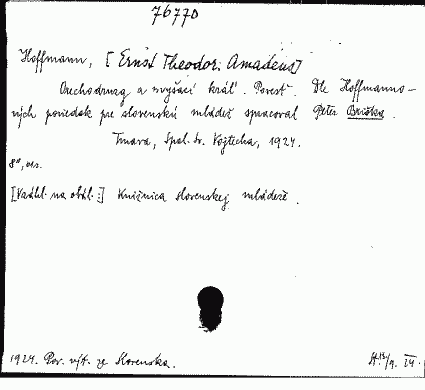 76770
Hoffmann, [Ernst Theodor Amadeus]
Orechodrug a myšací kráľ. Povesť. Dle Hoffmanno-
vých poviedok pre slovenskú mládež spracoval Peter Briška.
Trnava, Spol. sv. Vojtecha, 1924.
8°,
[Záhl. na obál.:] Knižnica slovenskej mládeže.
1924. Pov. výt. ze Slovenska.